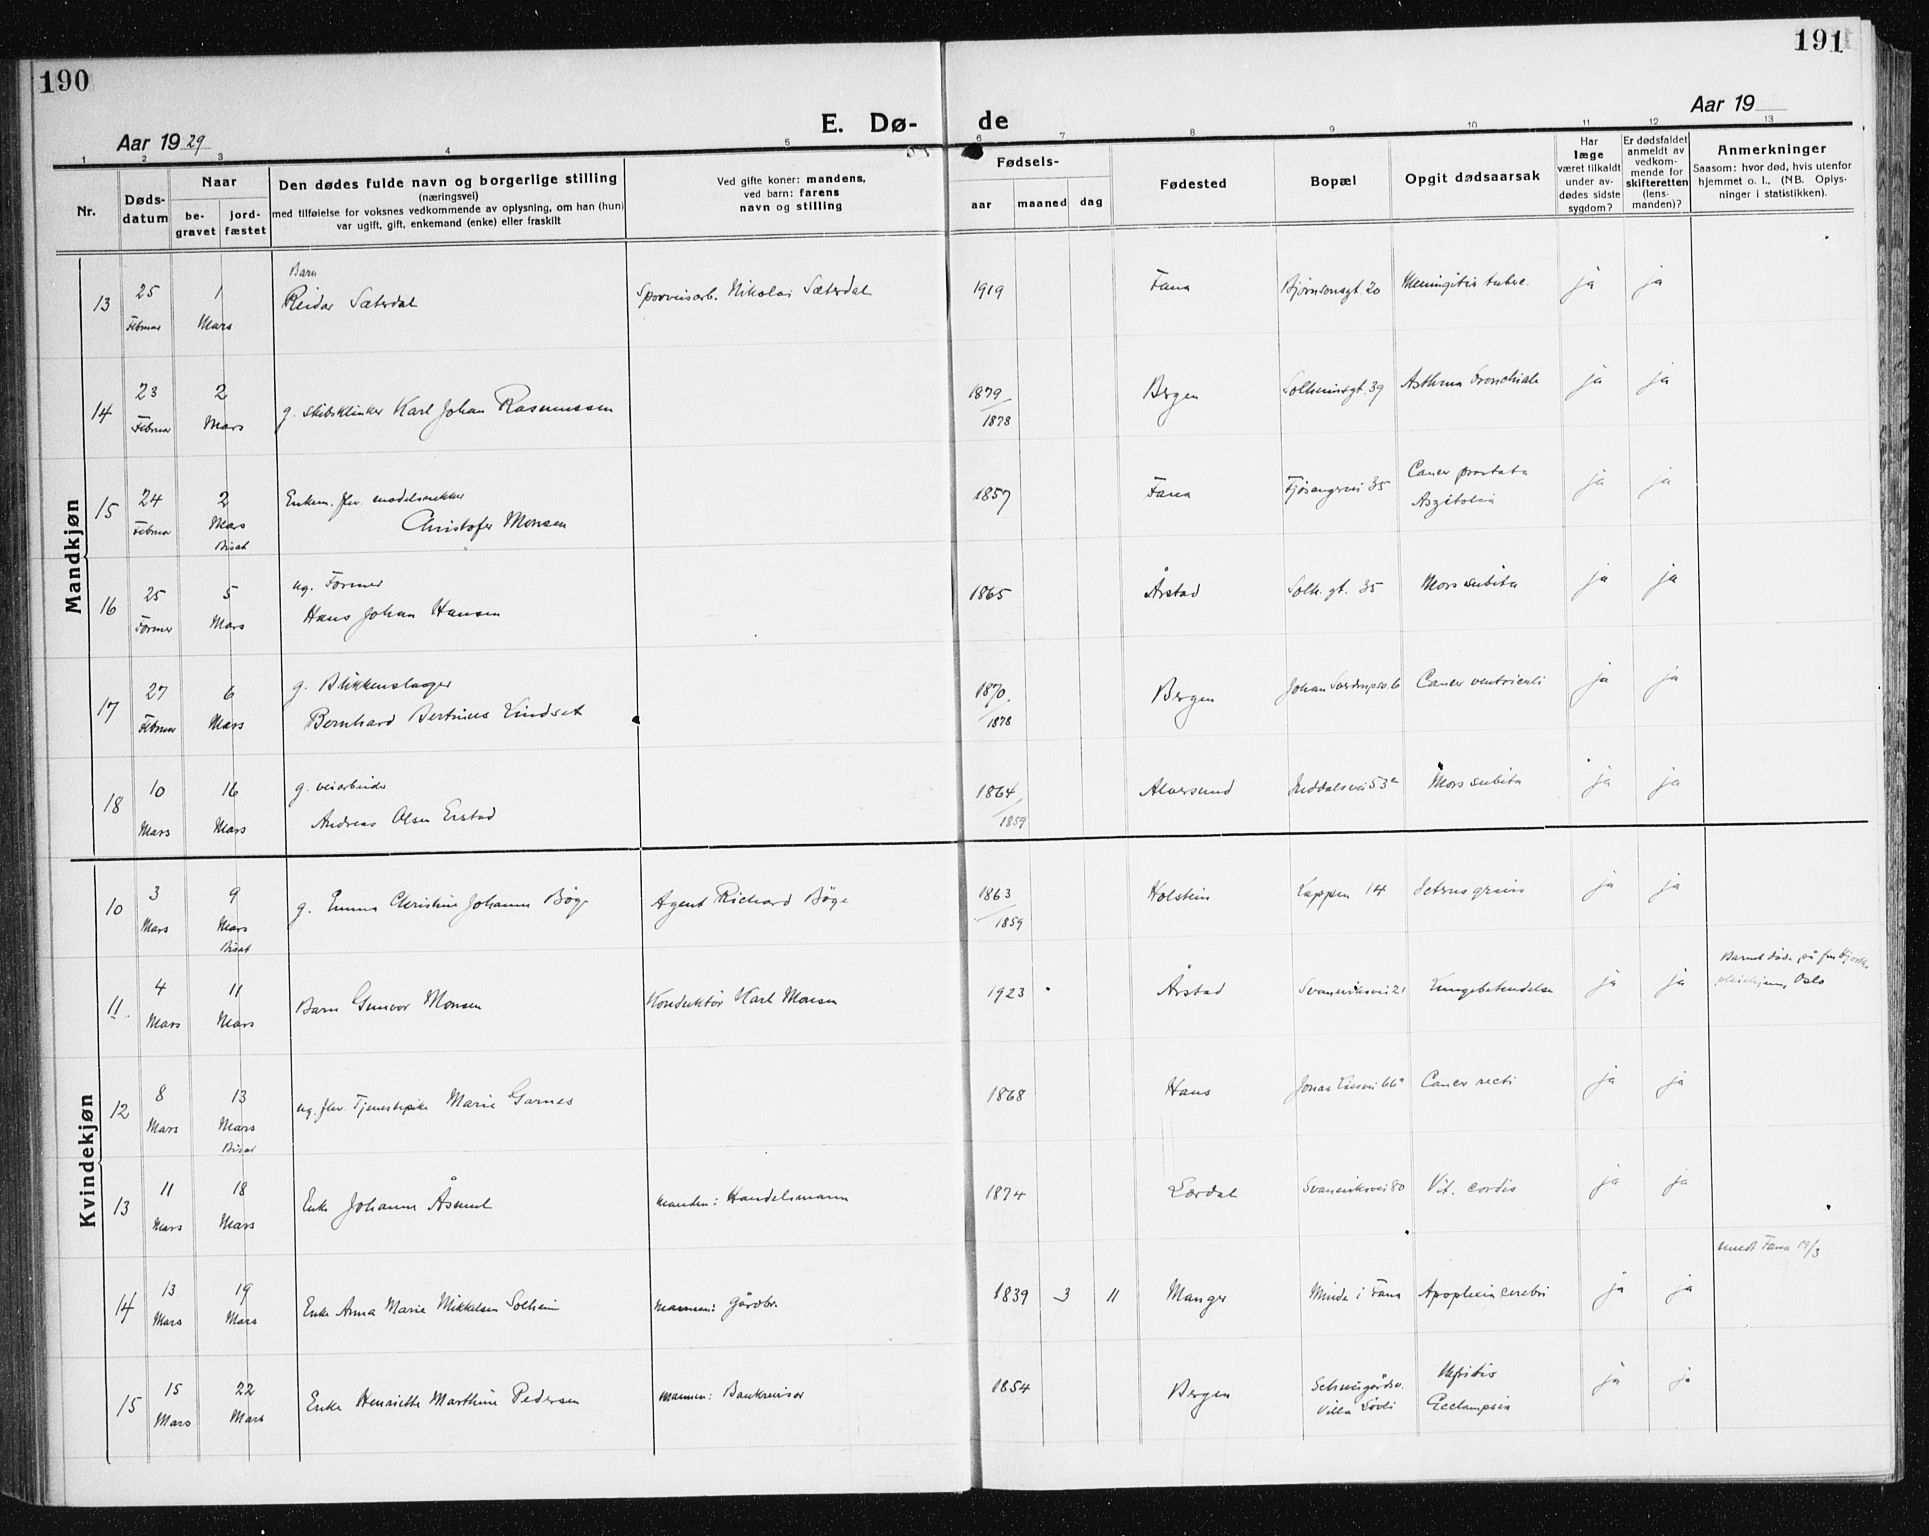 190
191
Aar 1929
E. Dø-
de
Aar 19
1 2 3 4 5 6 7 8 9 10 11 12 13
Nr.
Døds-
datum
Naar
be-
gravet
jord-
fæstet
Den dødes fulde navn og borgerlige stilling
(næringsvei)
med tilføielse for voksnes vedkommende av oplysning, om han (hun)
var ugift, gift, enkemand (enke) eller fraskilt
Ved gifte koner: mandens,
ved barn: farens
navn og stilling
Fødsels-
aar maaned dag
Fødested
Bopæl
Opgit dødsaarsak
Har
læge
været tilkaldt
under av-
dødes sidste
sygdom?
Er dødsfaldet
anmeldt av
vedkom-
mende for
skifteretten
(lens-
manden)?
Anmerkninger
Saasom: hvor død, hvis utenfor
hjemmet o. l., (NB. Oplys-
ninger i statistikken).
Mandkjøn
Barn
13 25 Februar 1 Mars Reidar Sæterdal Sporveisarb. Nikolai Sæterdal 1919 Fana Bjørnsonsgt. 20 Meningitis tuberc. ja ja
14 23 Februar 2 Mars g. skibsklinker Karl Johan Rasmussen 1879/1878 Bergen Solheimsgt. 39 Asthma bronchiale ja ja
15 24 Februar 2 Mars Bisat Enkem. fhv. modelsnekker
Christofer Monsen 1857 Fana Fjøsangervei 35 Cancer prostata ja ja
16 25 5 Mars ug. Former
Hans Johan Hansen 1865 Årstad Solh. gt. 35 Mors subita ja ja
17 27 Februar 6 Mars g. Blikkenslager
Bernhard Bertinus Lindset 1870/1878 Bergen Johan Sverdrupsv. 6 Cancer ventriculi ja ja
18 10 Mars 16 Mars g. veiarbeider
Andreas Olsen Erstad 1864/1859 Alversund 53a Mors subita ja ja
Kvindekjøn
10 3 Mars 9 Mars Bisat g. Emma Christine Johanne Böge Agent Richard Böge 1863/1859 Holstein Lappen 14 Icterus gravis ja ja
11 4 Mars 11 Mars Barn Gunvor Monsen Konduktør Karl Monsen 1923 Årstad Svaneviksvei 21 Lungebetendelse ja ja Barnet døde på
Oslo
12 8 Mars 13 Mars Bisat ug. fhv. Tjenestepike Marie Garnes 1868 Haus Jonas Liesvei 66a Cancer recti ja ja
13 11 Mars 18 Mars Enke Johanne Åsmul manden: Handelsmann 1874 Lærdal Svaneviksvei 80 Vit. cordis ja ja
meldt Fana 19/3
14 13 Mars 19 Mars Enke Anna Marie Mikkelsen Solheim mannen: Gårdbr. 1839 3 11 Manger Minde i Fana Apoplexia cerebri ja ja
15 15 Mars 22 Mars Enke Henriette Marthine Pedersen mannen: Bankrevisor 1854 Bergen Schweigårdsv.
Villa Løvli Nefritis
Ecclampsia ja ja